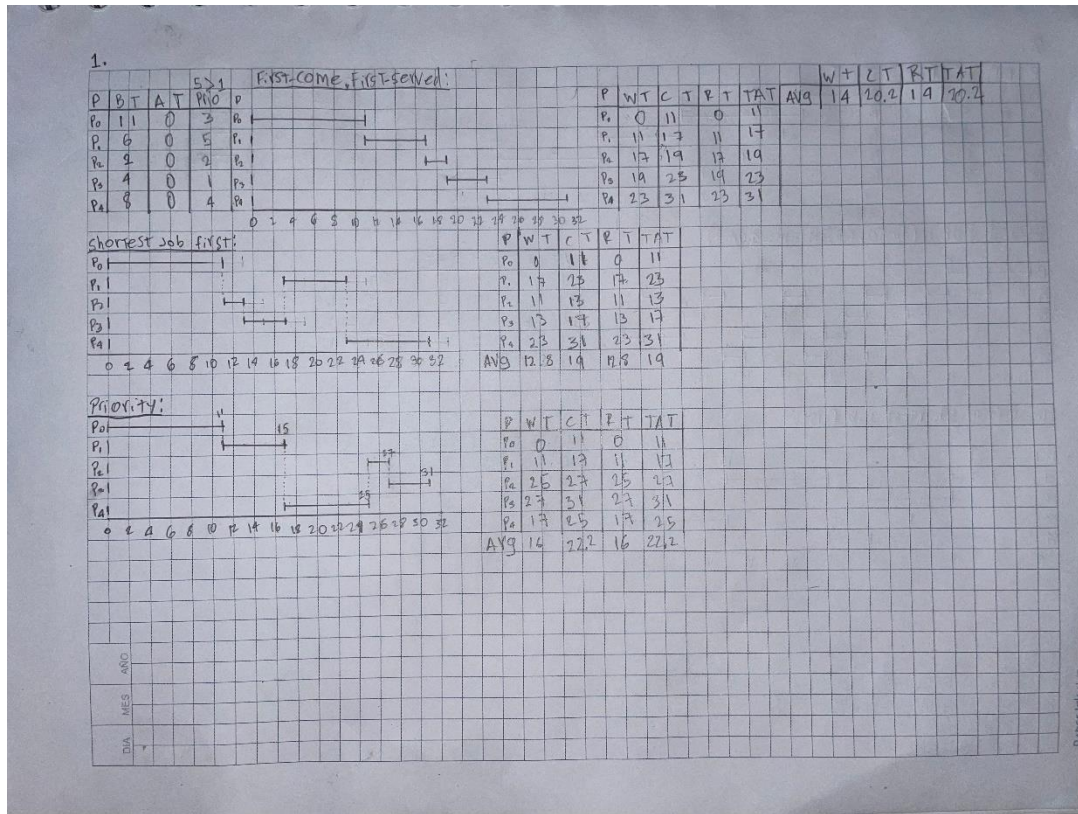 1.
5>1 First-come, First-served:
P BT AT Prio P
P0 11 0 3 P0
P1 6 0 5 P1
P2 2 0 2 P2
P3 4 0 1 P3
P4 8 0 4 P4
0 2 4 6 8 10 12 14 16 18 20 22 24 26 28 30 32
P WT CT RT TAT
P0 0 11 0 11
P1 11 17 11 17
P2 17 19 17 19
P3 19 23 19 23
P4 23 31 23 31
WT CT RT TAT
Avg 14 20.2 14 20.2
Shortest Job first:
P0
P1
P2
P3
P4
0 2 4 6 8 10 12 14 16 18 20 22 24 26 28 30 32
P WT CT RT TAT
P0 0 11 0 11
P1 17 23 17 23
P2 11 13 11 13
P3 13 17 13 17
P4 23 31 23 31
AVg 12.8 19 12.8 19
Priority:
P0 11
P1 15
P2 27
31
P4 25
0 2 4 6 8 10 12 14 16 18 20 22 24 26 28 30 32
P WT CT RT TAT
P0 0 11 0 11
P1 11 17 11 17
P2 25 27 25 27
P3 27 31 27 31
P4 17 25 17 25
AVg 16 22.2 16 22.2
DIA MES AÑO